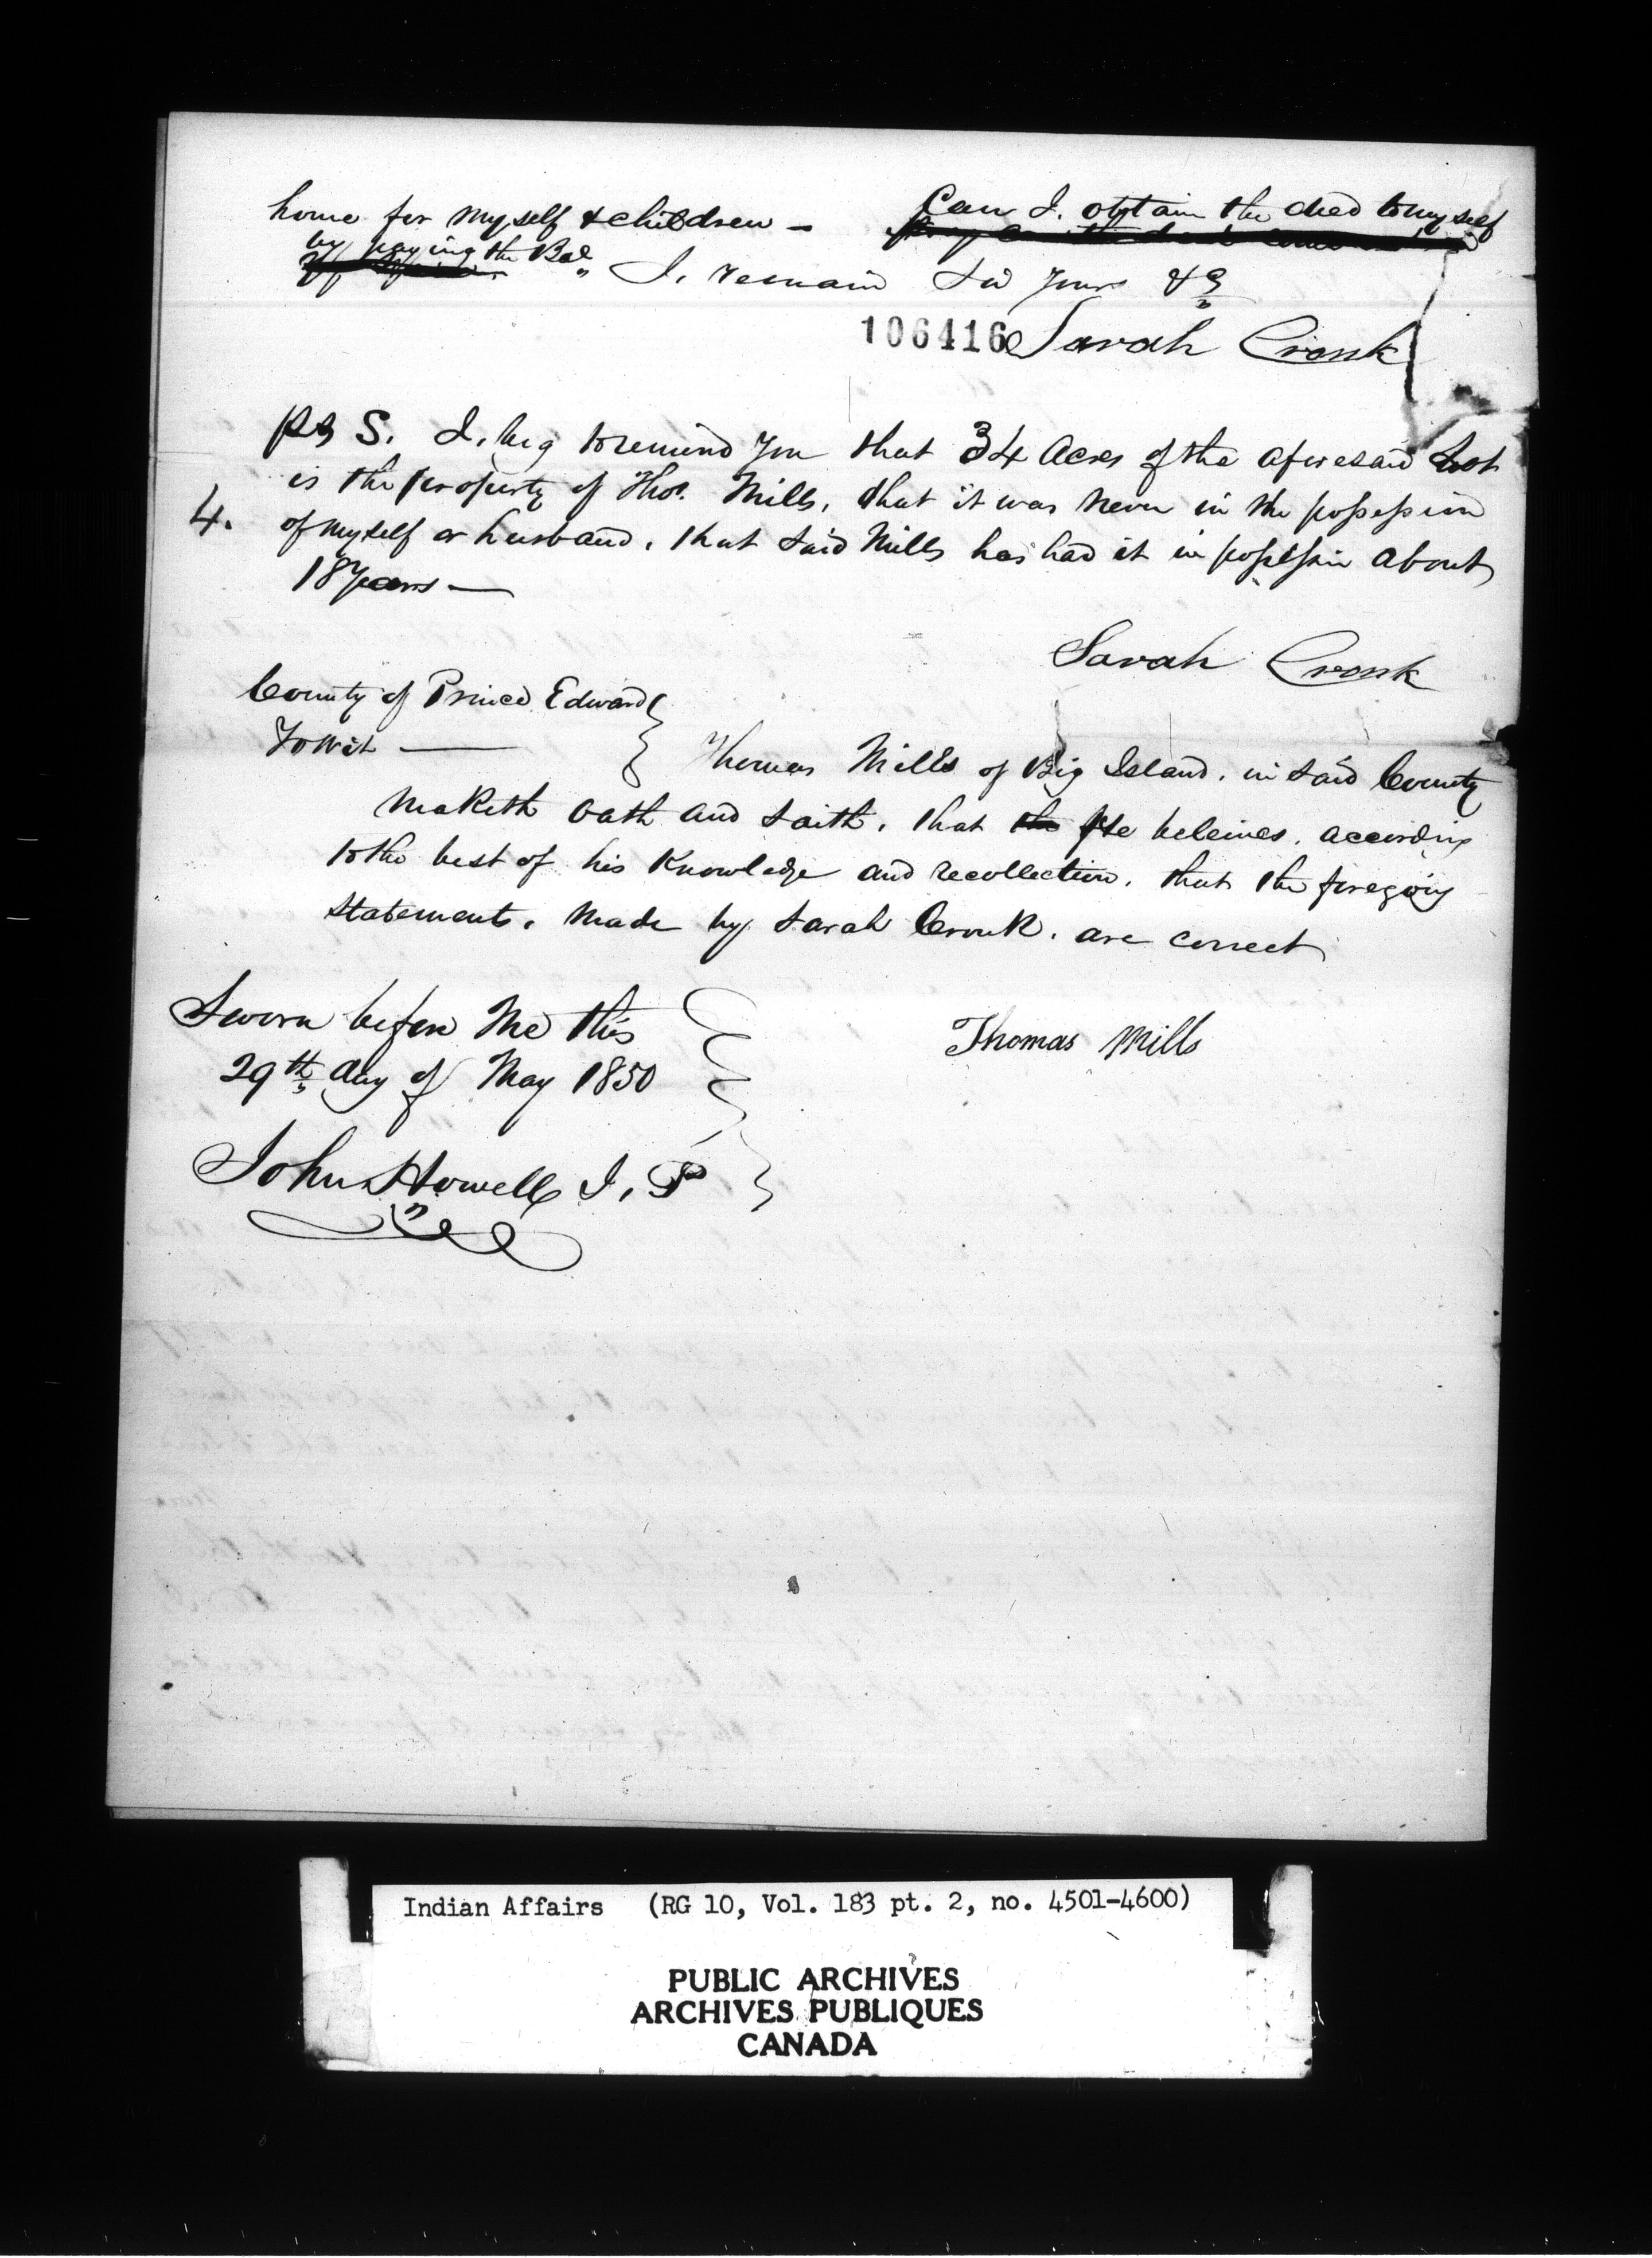 home for myself & children — Can I. obtain the deed to myself
by paying the Bal. I. remain Sir yours &c
106416 Sarah Cronk
P S. I, beg to remind you that 34 Acres of the aforesaid Lot
is the property of Thos. Mills, that it was never in the possession
4. of myself or husband, that said Mills has had it in possession about
18 years —
Sarah Cronk
County of Prince Edward
To Wit — Thomas Mills of Big Island. in said County
Maketh Oath and saith, that he beleives, according
to the best of his Knowledge and recollection, that the foregoing
statements, made by Sarah Cronk, are correct
Sworn before Me this
29th day of May 1850
Thomas Mills
John Howell J, P
Indian Affairs (RG 10, Vol. 183 pt. 2, no. 4501-4600)
PUBLIC ARCHIVES
ARCHIVES PUBLIQUES
CANADA